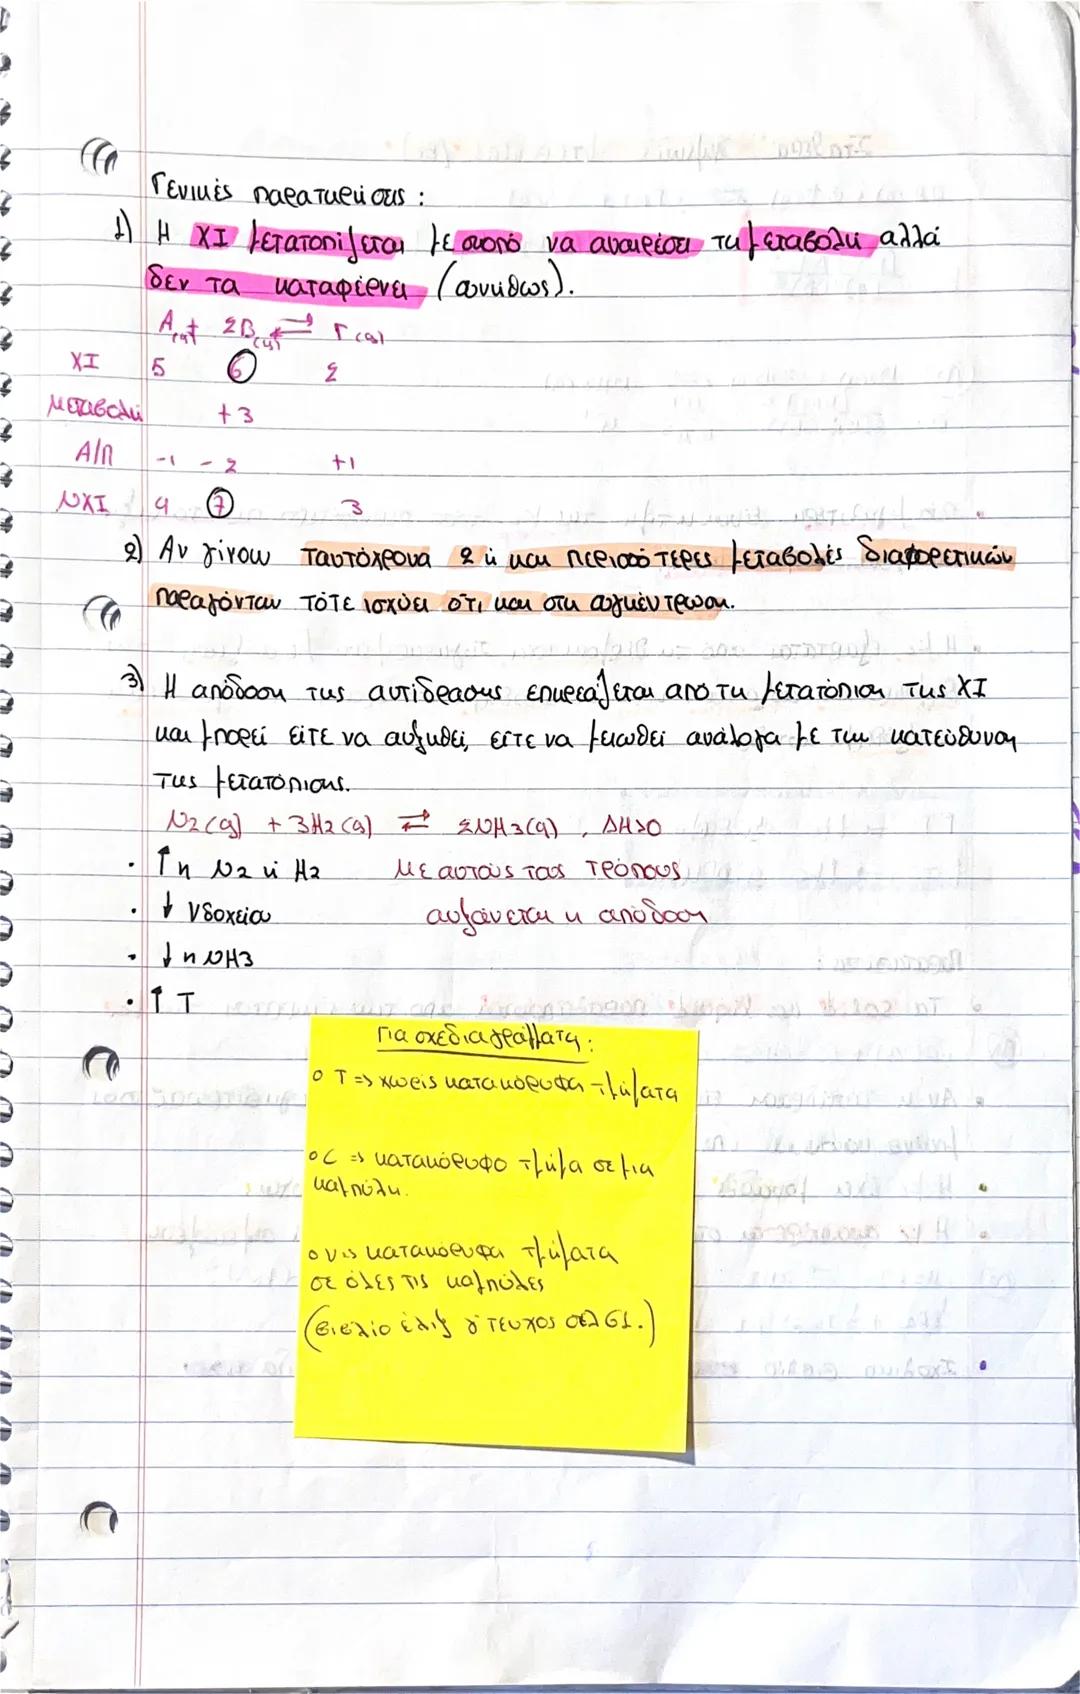 Γενικές παρατηρήσεις :
1) Η ΧΙ μετατοπίζεται με σκοπό να αναιρέσει τη μεταβολή αλλά
δεν τα καταφέρνει (συνήθως).
A(g) + 2B(g) ⇄ Γ(g)
ΧΙ 5 6 2
Μεταβολή +3
Α/Π -1 -2 +1
ΝΧΙ 4 7 3
2) Αν γίνουν ταυτόχρονα 2 ή και περισσότερες μεταβολές διαφορετικών
παραγόντων τότε ισχύει ότι και στη συγκέντρωση.
3) Η απόδοση της αντίδρασης επηρεάζεται από τη μετατόπιση της ΧΙ
και μπορεί είτε να αυξηθεί, είτε να μειωθεί ανάλογα με την κατεύθυνση
της μετατόπισης.
N2(g) + 3H2(g) ⇄ 2NH3(g) , ΔH>0
· ↑n N2 ή H2 Με αυτούς τους τρόπους
· ↓ Vδοχείου αυξάνεται η απόδοση
· ↓n NH3
· ↑ T
Για σχεδιαγράμματα :
○ T => χωρίς κατακόρυφα τμήματα
○ C => κατακόρυφο τμήμα σε μια
καμπύλη.
○ V => κατακόρυφα τμήματα
σε όλες τις καμπύλες
(βιβλίο έλιξ γ' τεύχος σελ 61.)